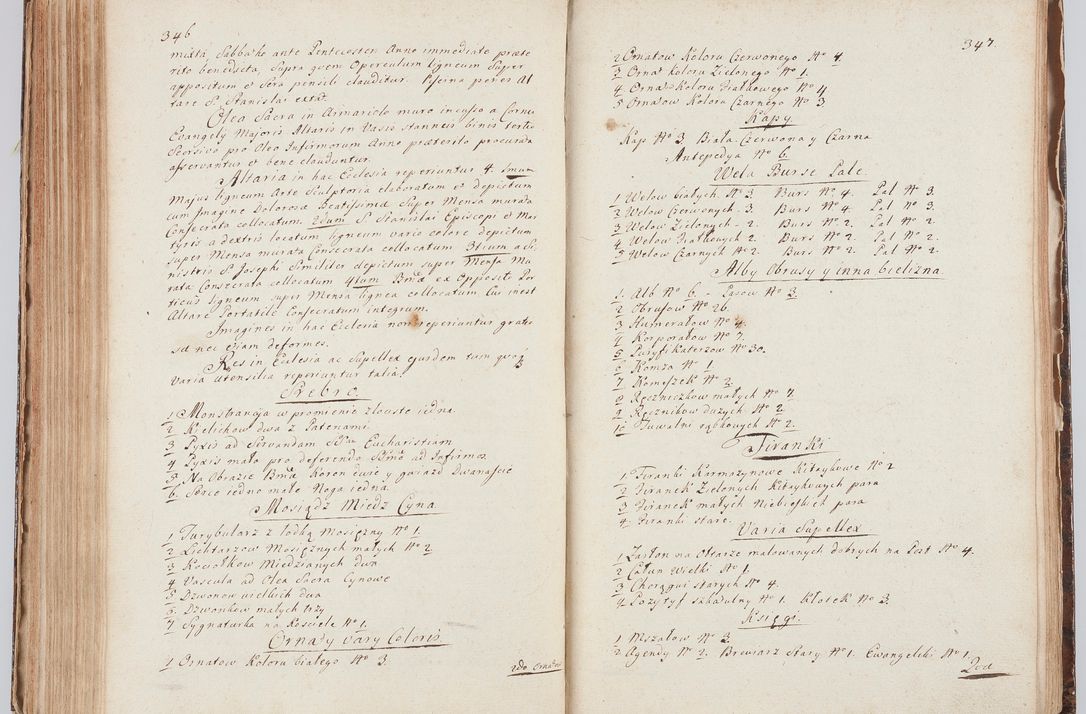 346
mixta, Sabbatho ante Pentecosten Anno immediate præte
rito benedicta, Supra quem Operculum ligneum Super
appositum et Sera pensili clauditur. Piscina penes Al
tare S. Stanislai extat.
Olea Sacra in Armariolo muro incluso a Cornu
Evangelij Majoris Altaris in Vasis stanneis binis tertio
Seorsivo pro Oleo Infirmorum Anno præterito procurata
asservantur et bene clauduntur.
Altaria in hac Ecclesia reperiuntur 4. 1mum
Majus ligneum Arte Sculptoria elaboratum et depictum
cum Imagine Dolorosa Beatissimæ Super Mensa murata
Consecrata collocatum. 2dum S. Stanislai Episcopi et Mar
tyris a dextris locatum ligneum vario colore depictum
super Mensa murata Consecrata collocatum. 3tium a Si
nistris S. Josephi Similiter depictum super Mensa Mu
rata Consecrata collocatum 4tum Bmæ ex Opposito Por
ticus ligneum super Mensa lignea collocatum Cui inest
Altare Portatile Consecratum integrum.
Imagines in hac Ecclesia non reperiuntur gratis
sed nec etiam deformes.
Res in Ecclesia ac Supellex ejusdem tum quoq3
Varia Utensilia reperiuntur talia.
Srebro
1 Monstrancja w promienie złociste iedna.
2 Kielichow dwa z Patenami
3 Pyxis ad Servandam SSmam Eucharistiam
4 Pyxis mała pro deferendo SSmo ad Infirmos
5 Na Obrazie Bmæ Koron dwie y gwiazd Dwanaście
6. Serce iedno małe Noga iedna
Mosiądz Miedz Cyna
1 Turybularz z łodką Mosiężny No 1.
2 Lichtarzow Mosiężnych małych No 2
3 Kociołkow Miedzianych dwa
4 Vascula ad Olea Sacra Cynowe
5 Dzwonow wielkich dwa
6 Dzwonkow małych trzy
7 Sygnaturka na Kosciele No 1.
Ornaty vary Coloris
1 Ornatow Koloru białego No 3.
2do Ornatow
347.
2 Ornatow Koloru Czerwonego No 4.
3 Ornat Koloru Zielonego No 1.
4 Ornat Koloru Fiałkowego No 4
5 Ornatow Koloru Czarnego No 3
Kapy
Kap No 3. Biała Czerwona y Czarna
Antepedya No 6.
Wela Burse Pale.
1 Welow białych No 3. Burs No 4. Pal No 3.
2 Welow Czerwonych. 3. Burs No 4. Pal No 3.
3 Welow Zielonych. 2. Burs No 2. Pal No 2.
4 Welow Fiałkowych 2. Burs No 2. Pal No 2.
5 Welow Czarnych No 2. Burs No 2. Pal No 2.
Alby Obrusy y inna bielizna.
1. Alb No 6. – Pasow No 3.
2 Obrusow No 26.
3 Humerałow No 4.
4 Korporałow No 7.
5 Puryfikaterzow No 30.
6 Komża No 1.
7 Komeszek No 3.
8 Ręczniczkow małych No 7.
9 Ręcznikow dużych No 2.
10 Tuwalni rąbkowych No 2.
Firanki
1. Firanki Karmazynowe Kitaykowe No 2
2 Firanek Zielonych Kitaykowych para
3 Firanek małych Niebieskich para
4. Firanki stare.
Varia Supellex.
1 Zasłon na Ołtarze malowanych dobrych na Post No 4.
2 Całun Wielki No 1.
3 Chorągwi starych No 4.
4 Pozytyf szkatulny No 1. Kłotek No 3.
Księgi.
1 Mszałow No 3.
2 Agendy No 2. Brewiarz Stary No 1. Ewangeliki No 1.
Pod